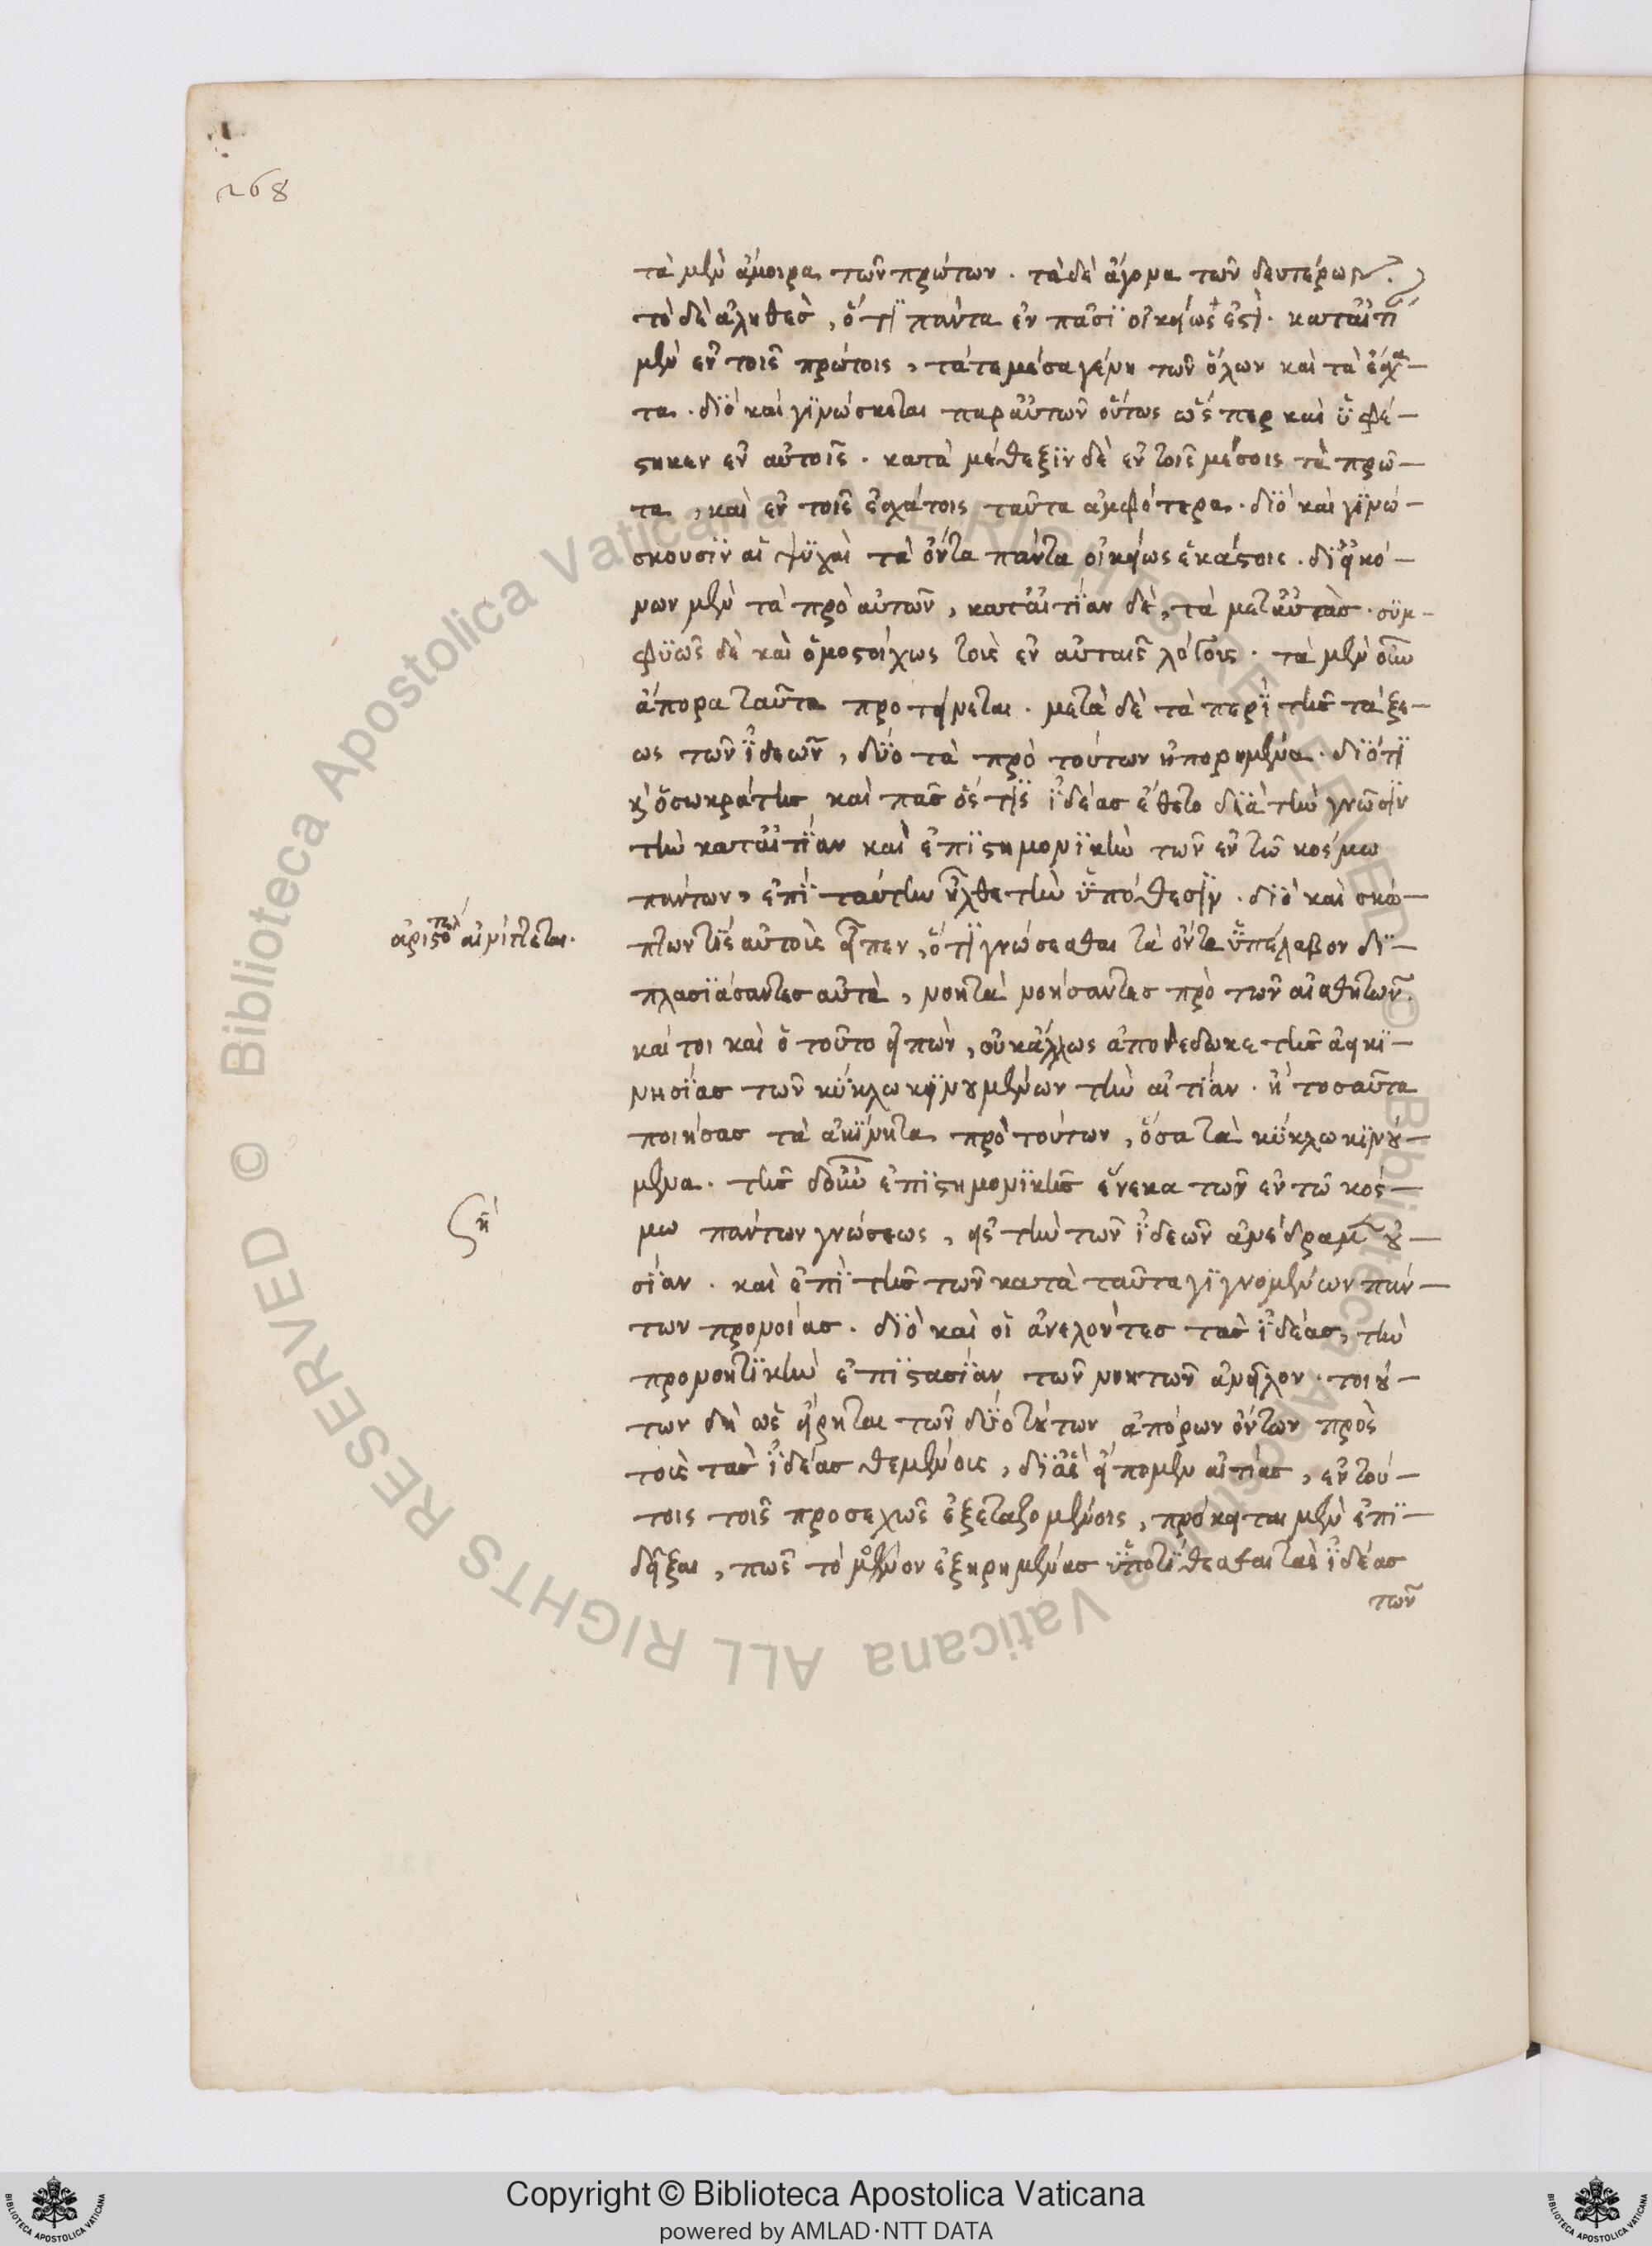 268
τὰ μὲν ἄμοιρα τῶν πρώτων. τὰ δὲ ἄγονα τῶν δευτέρων.
τὸ δὲ ἀληθὲς, ὅτι πάντα ἐν πᾶσι οἰκείως ἐστὶ. κατ' αἰτί
μὲν ἐν τοῖς πρώτοις, τά τε μέσα γένη τῶν ὅλων καὶ τὰ ἔσχα-
τα. διὸ καὶ γινώσκεται παρ' αὐτῶν οὕτως ὥσπερ καὶ ὑφέ-
στηκεν ἐν αὐτοῖς. κατὰ μέθεξιν δὲ ἐν τοῖς μέσοις τὰ πρῶ-
τα, καὶ ἐν τοῖς ἐσχάτοις ταῦτα ἀμφότερα. διὸ καὶ γινώ-
σκουσιν αἱ ψυχαὶ τὰ ὄντα πάντα οἰκείως ἑκάστοις. δι' εἰκό-
νων μὲν τὰ πρὸ αὐτῶν, κατ' αἰτίαν δὲ, τὰ μετ' αὐτὰς. συμ-
φυῶς δὲ καὶ ὁμοστοίχως τοῖς ἐν αὐταῖς λόγοις. τὰ μὲν οὖν
ἄπορα ταῦτα προτείνεται. μετὰ δὲ τὰ περὶ τῆς τάξε-
ως τῶν ἰδεῶν, δύο τὰ πρὸ τούτων ἠπορημένα. διότι
κ' ὁ σωκράτης καὶ πᾶς ὅστις ἰδέας ἔθετο διὰ τὴν γνῶσιν
τὴν κατ' αἰτίαν καὶ ἐπιστημονικὴν τῶν ἐν τῶ κόσμω
πάντων, ἐπὶ ταύτην ἦλθε τὴν ὑπόθεσιν. διὸ καὶ σκώ-
ἀριστοτέλ αἰνίττεται.
πτων τὶς αὐτοὺς εἶπεν, ὅτι γνώσεσθαι τὰ ὄντα ὑπέλαβον δι-
πλασιάσαντες αὐτὰ, νοητὰ νοήσαντες πρὸ τῶν αἰσθητῶν.
καί τοι καὶ ὁ τοῦτο εἰπὼν, οὐκ ἄλλως ἀποδέδωκε τῆς ἀεικι-
νησίας τῶν κύκλω κινουμένων τὴν αἰτίαν. ἢ τοσαῦτα
ποιήσας τὰ ἀκίνητα πρὸ τούτων, ὅσα τὰ κύκλω κινού-
μενα. τῆς δ' οὖν ἐπιστημονικῆς ἕνεκα τῶν ἐν τῶ κόσ-
ση
μω πάντων γνώσεως, εἰς τὴν τῶν ἰδεῶν ἀνέδραμον οὐ-
σίαν. καὶ ἐπὶ τῆς τῶν κατὰ ταῦτα γιγνομένων πάν-
των προνοίας. διὸ καὶ οἱ ἀνελόντες τὰς ἰδέας, τὴν
προνοητικὴν ἐπιστασίαν τῶν νοητῶν ἀνεῖλον. τοιού-
των δὴ ὡς εἴρηται τῶν δύο τούτων ἀπόρων ὄντων πρὸς
τοῖς τὰς ἰδέας θεμένοις, δι' ἃς εἴπομεν αἰτίας, ἐν τού-
τοις τοῖς προσεχῶς ἐξεταζομένοις, πρόκειται μὲν ἐπι-
δεῖξαι, πῶς τὸ μόνον ἐξηρημένας ὑποτίθεσθαι τὰς ἰδέας
τῶν
Copyright © Biblioteca Apostolica Vaticana
powered by AMLAD·NTT DATA
© Biblioteca Apostolica Vaticana ALL RIGHTS RESERVED © Biblioteca Apostolica Vaticana ALL RIGHTS RESERVED